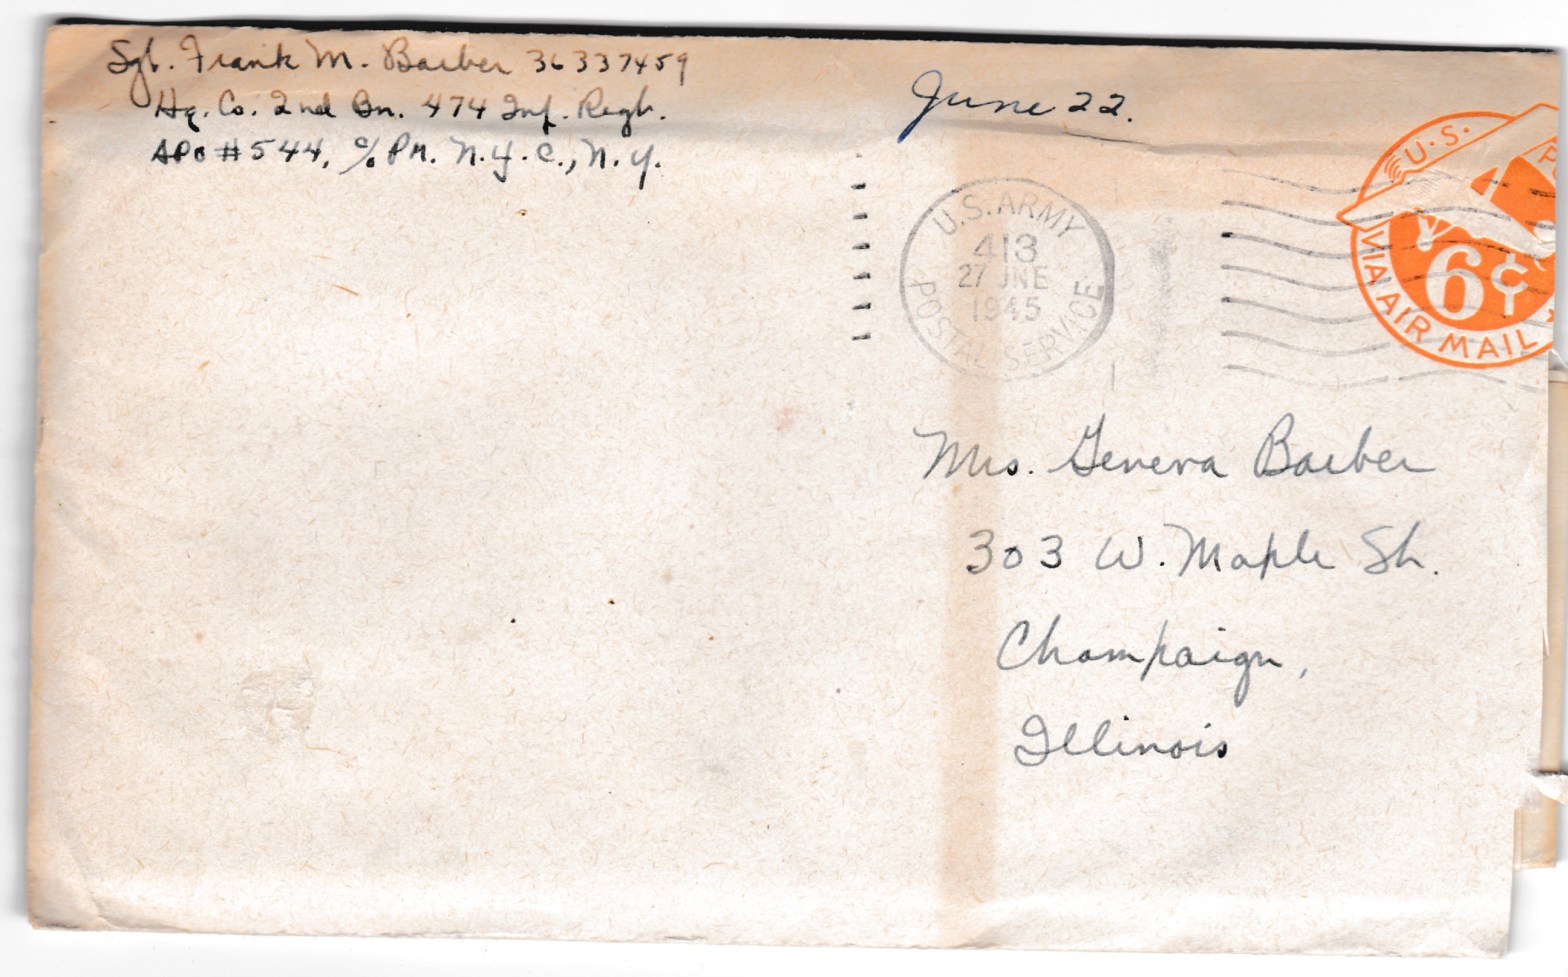 Sgt. Frank M. Barber 36337459
Hq. Co. 2nd Bn. 474 Inf. Regt.
APO #544, c/o PM. N.Y.C., N.Y.
June 22.
U.S. ARMY
413
27 JNE
1945
POSTAL SERVICE
U.S.
6¢
VIA AIR MAIL
Mrs. Geneva Barber
303 W. Maple St.
Champaign,
Illinois